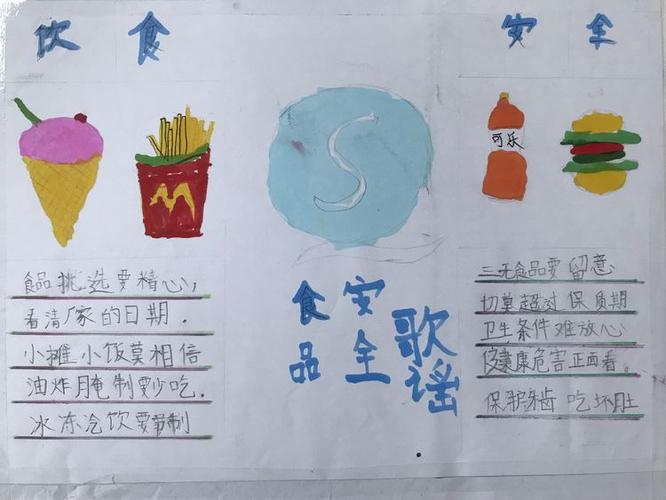 饮食
安全
可乐
S
食品安全歌谣
食品挑选要精心,
看清厂家的日期.
小摊小饭莫相信
油炸腌制要少吃.
冰冻冷饮要节制
三无食品要留意
切莫超过保质期
卫生条件难放心
健康危害正面看.
保护牙齿 吃坏肚